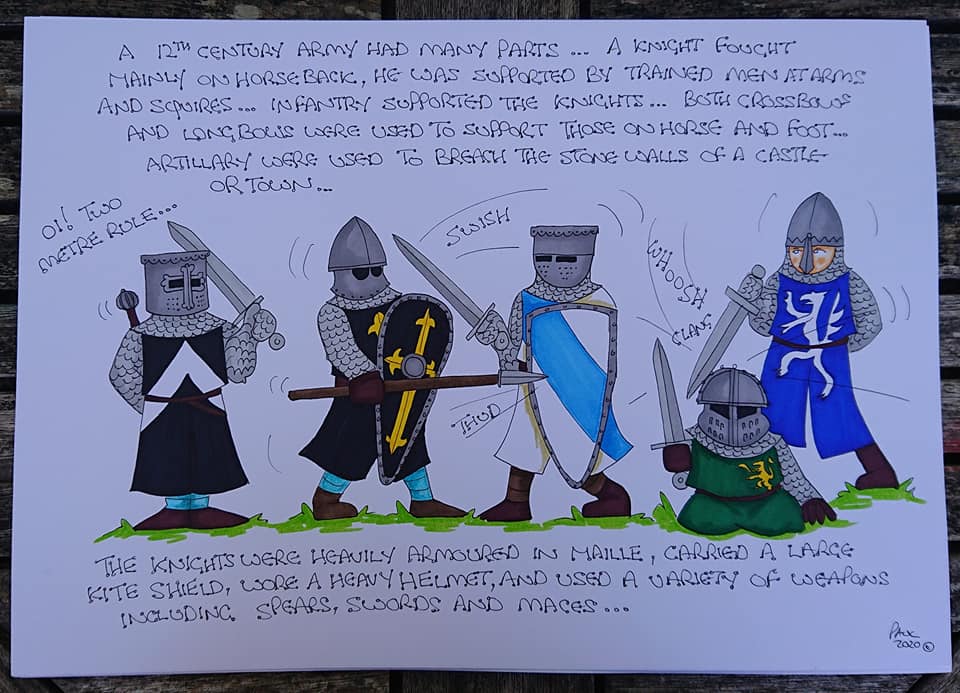 A 12TH CENTURY ARMY HAD MANY PARTS ... A KNIGHT FOUGHT
MAINLY ON HORSEBACK, HE WAS SUPPORTED BY TRAINED MEN AT ARMS
AND SQUIRES... INFANTRY SUPPORTED THE KNIGHTS... BOTH CROSSBOWS
AND LONGBOWS WERE USED TO SUPPORT THOSE ON HORSE AND FOOT...
ARTILLARY WERE USED TO BREACH THE STONE WALLS OF A CASTLE
OR TOWN...
OI! TWO
METRE RULE...
SWISH
WHOOSH
CLANG
THUD
THE KNIGHTS WERE HEAVILY ARMOURED IN MAILLE, CARRIED A LARGE
KITE SHIELD, WORE A HEAVY HELMET, AND USED A VARIETY OF WEAPONS
INCLUDING SPEARS, SWORDS AND MACES...
2020 ©